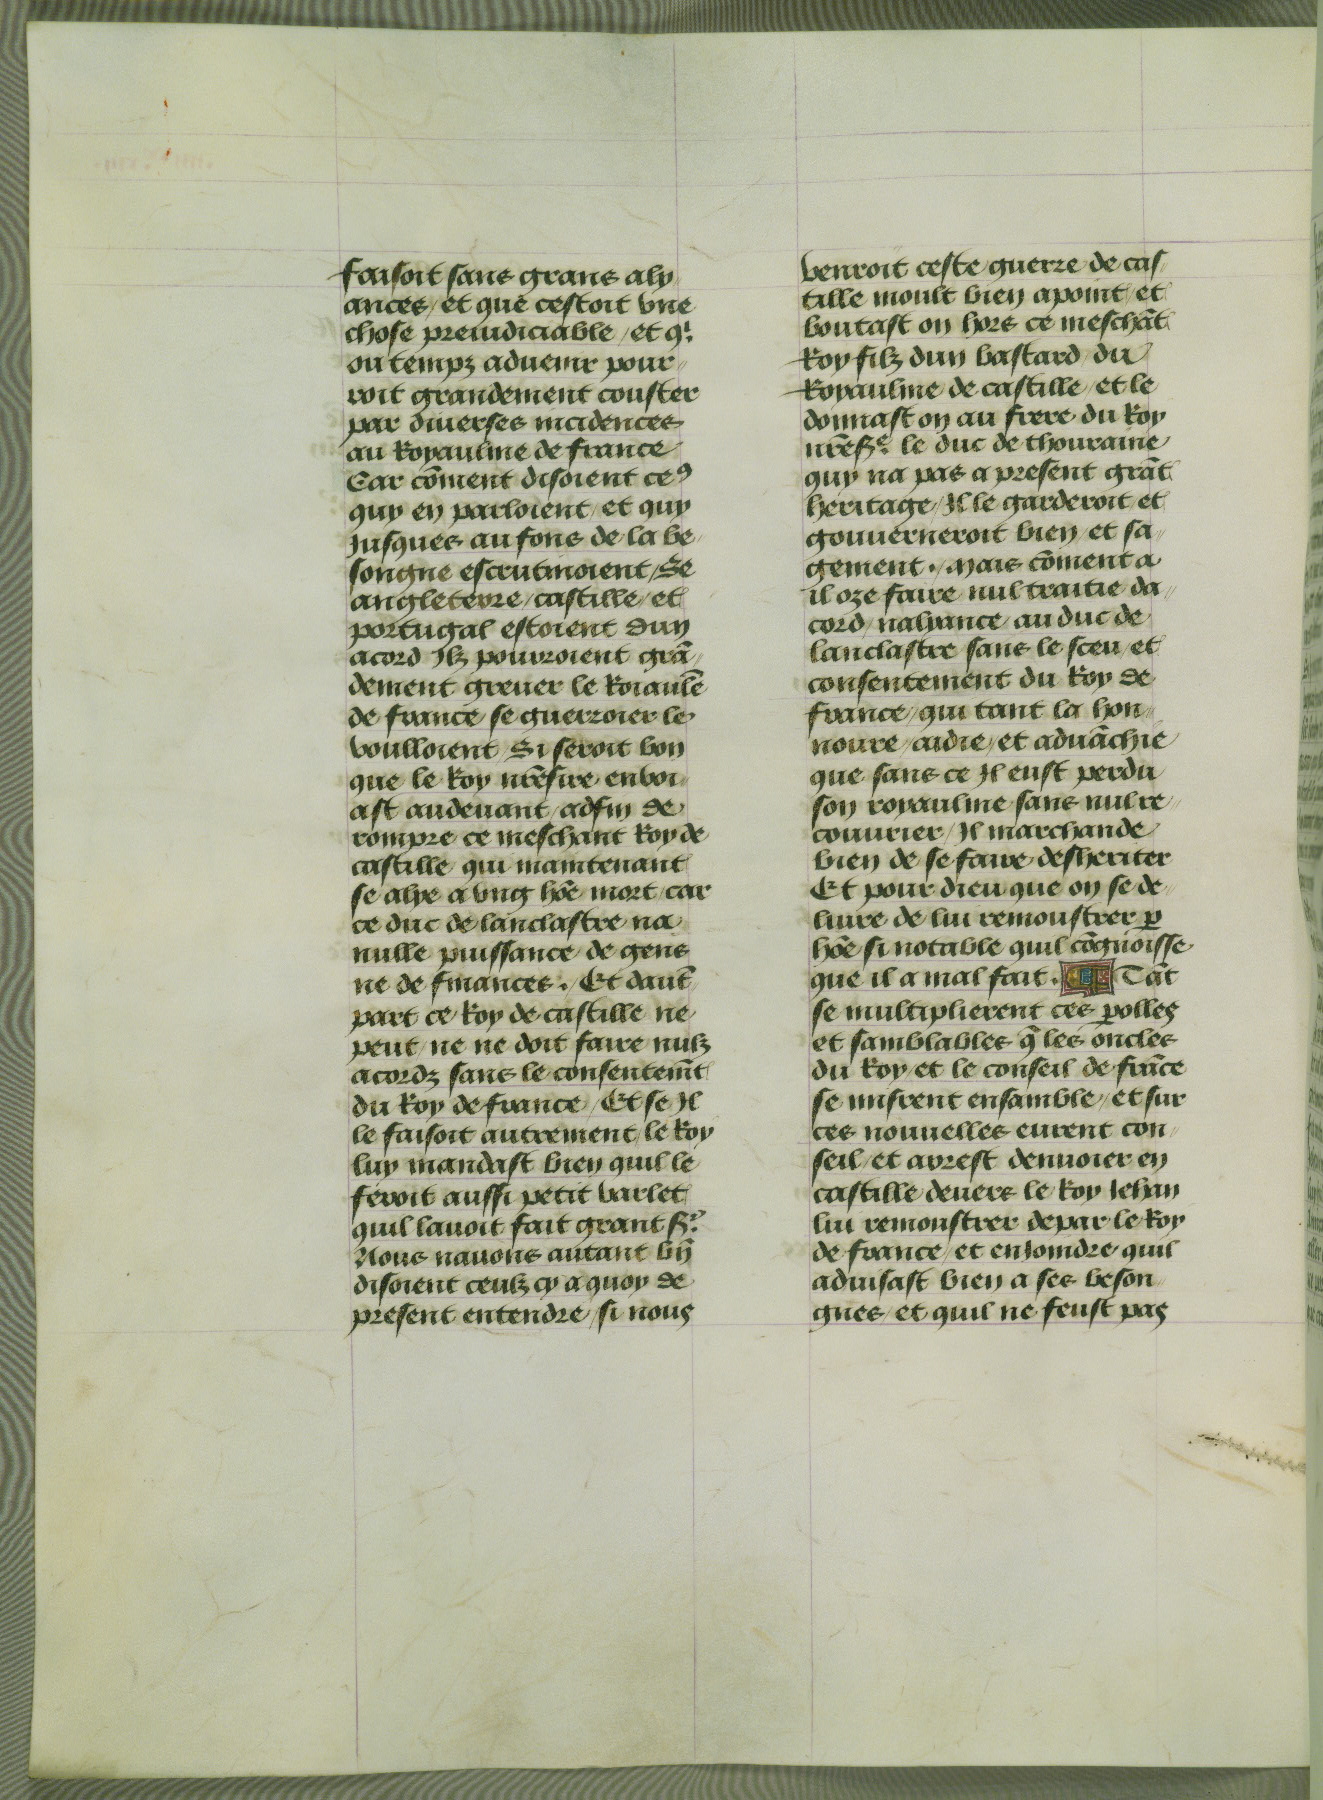 faisoit sans grans aly
ances / et que cestoit vne
chose preiudiciable / et q̄
ou tempz aduenir pour-
roit grandement couster
par diuerses incidences
au Royaulme de france
Car cōment disoient ceꝰ
quy en parloient / et quy
jusques au fons de la be-
songne escrutinoient / Se
angleterre / castille / et
portugal estoient dun
acord Ilz pourroient grā-
dement greuer le Roiaulē
de france se guerroier le
voulloient / Si seroit bon
que le Roy nrēsire enuoi-
ast audeuant / adfin de
rompre ce meschant Roy de
castille qui maintenant
se alye a vng hōe mort / car
ce duc de lanclastre na
nulle puissance de gens
ne de finances . Et dautēt
part ce Roy de castille ne
peut / ne ne doit faire nulz
acordz sans le consentem̄t
du Roy de france / Et se Il
le faisoit autrement / le Roy
luy mandast bien quil le
feroit aussi petit varlet
quil lauoit fait grant sr̄
Nous nauons autant bn̄
disoient ceulz cy a quoy de
present entendre / si nous
venroit ceste guerre de cas-
tille moult bien apoint / et
boutast on hors ce meschāt
Roy filz dun bastard du
Royaulme de castille / et le
donnast on au frere du Roy
nrēsr̄ le duc de thouraine
quy na pas a present grāt
heritage / Il le garderoit et
gouuerneroit bien et sa-
gement . Mais cōment a
il oze faire nul traitie da-
cord / nalyance au duc de
lanclastre sans le sceu / et
consentement du Roy de
france / qui tant la hon-
noure / aidie / et aduāchie
que sans ce Il eust perdu
son royaulme sans nul re-
couurier / Il marchande
bien de se faire desheriter
Et pour dieu que on se de-
liure de lui remoustrer ꝑ
hōe si notable quil cōgnoisse
que il a mal fait . Tāt
se multiplierent ces ꝑolles
et samblables q̄ les oncles
du Roy / et le conseil de frāce
se misrent ensamble / et sur
ces nouuelles eurent con-
seil / et arrest denuoier en
castille deuers le Roy Jehan
lui remonstrer depar le Roy
de france / et enjoindre quil
aduisast bien a ses beson-
gnes / et quil ne feust pas